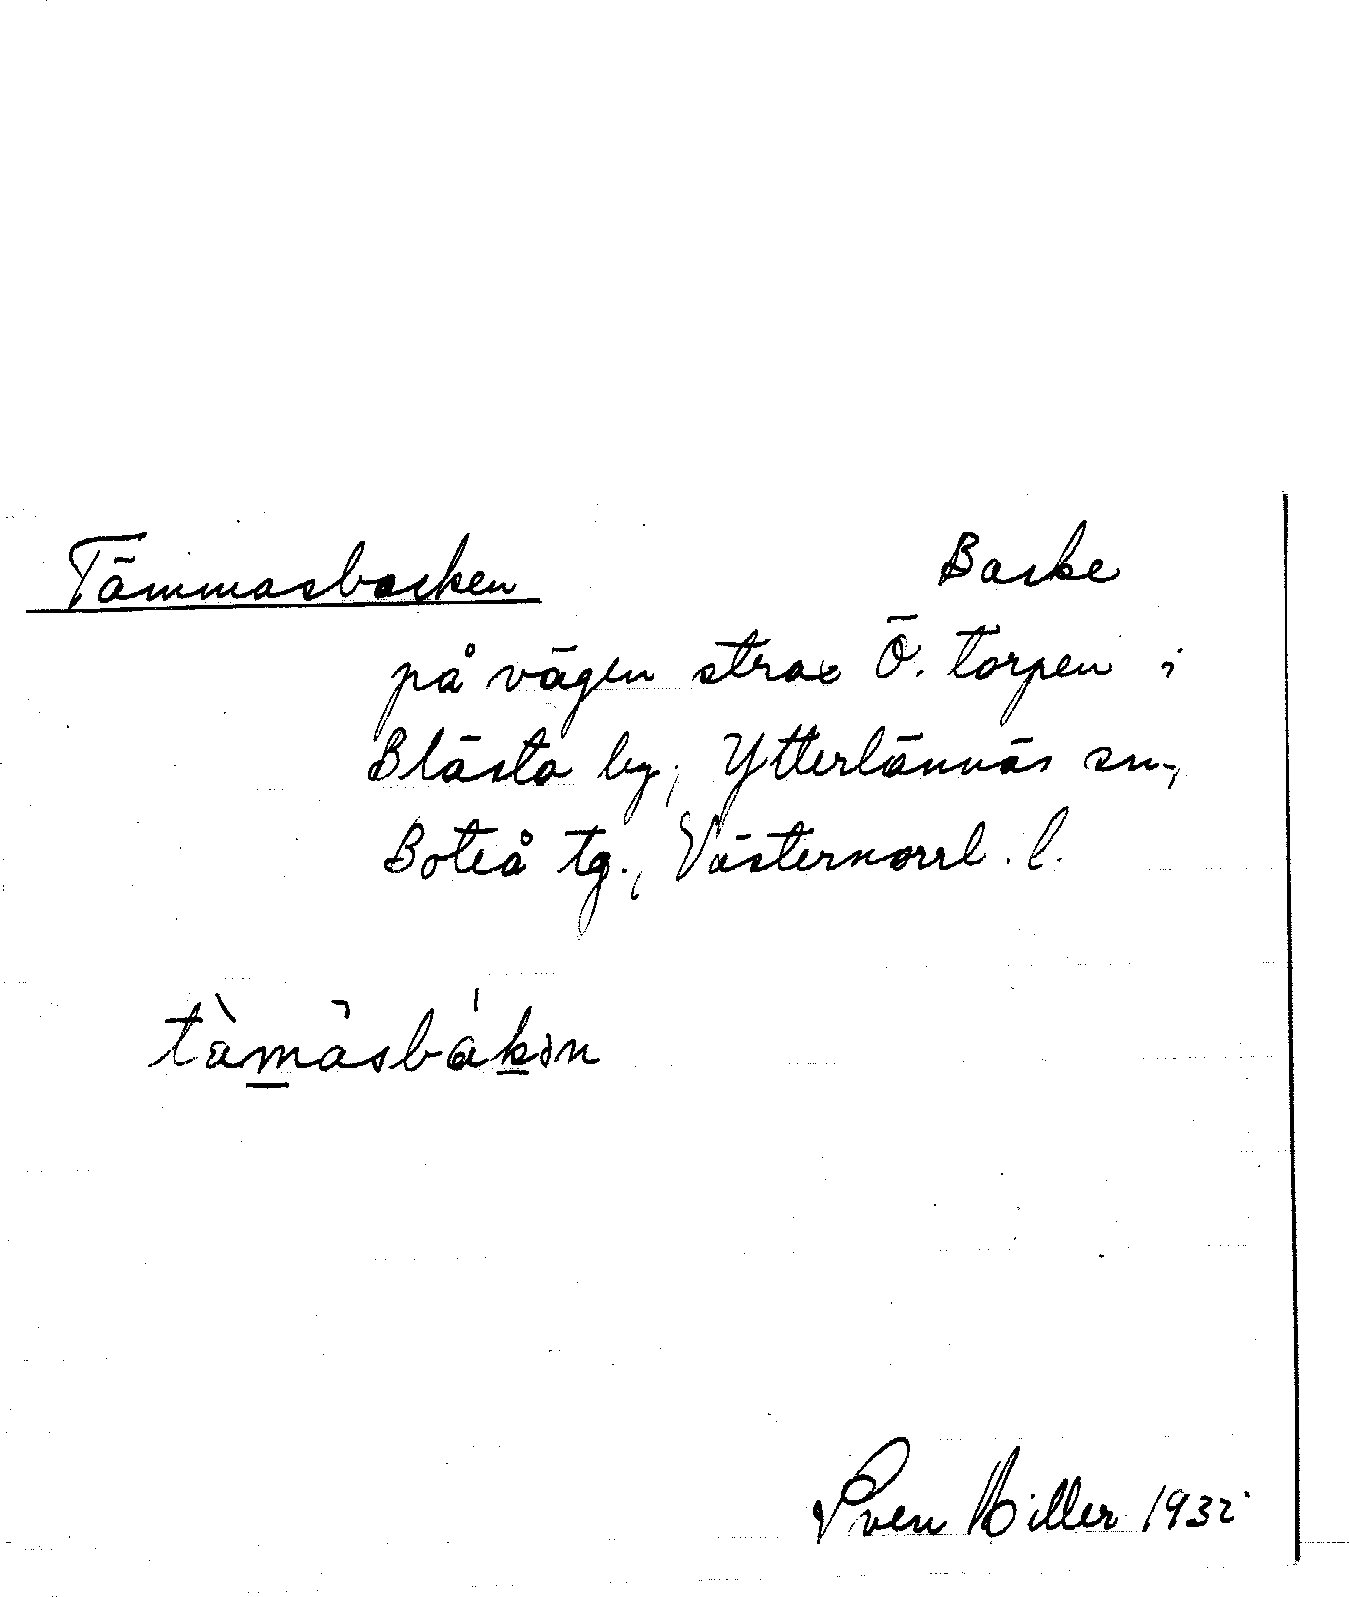 Tämmasbacken Backe
på vägen strax Ö. torpen i
Blästa by, Ytterlännäs sn,
Boteå tg., Västernorrl. l.
tàmàsbákən
Sven Hiller 1932